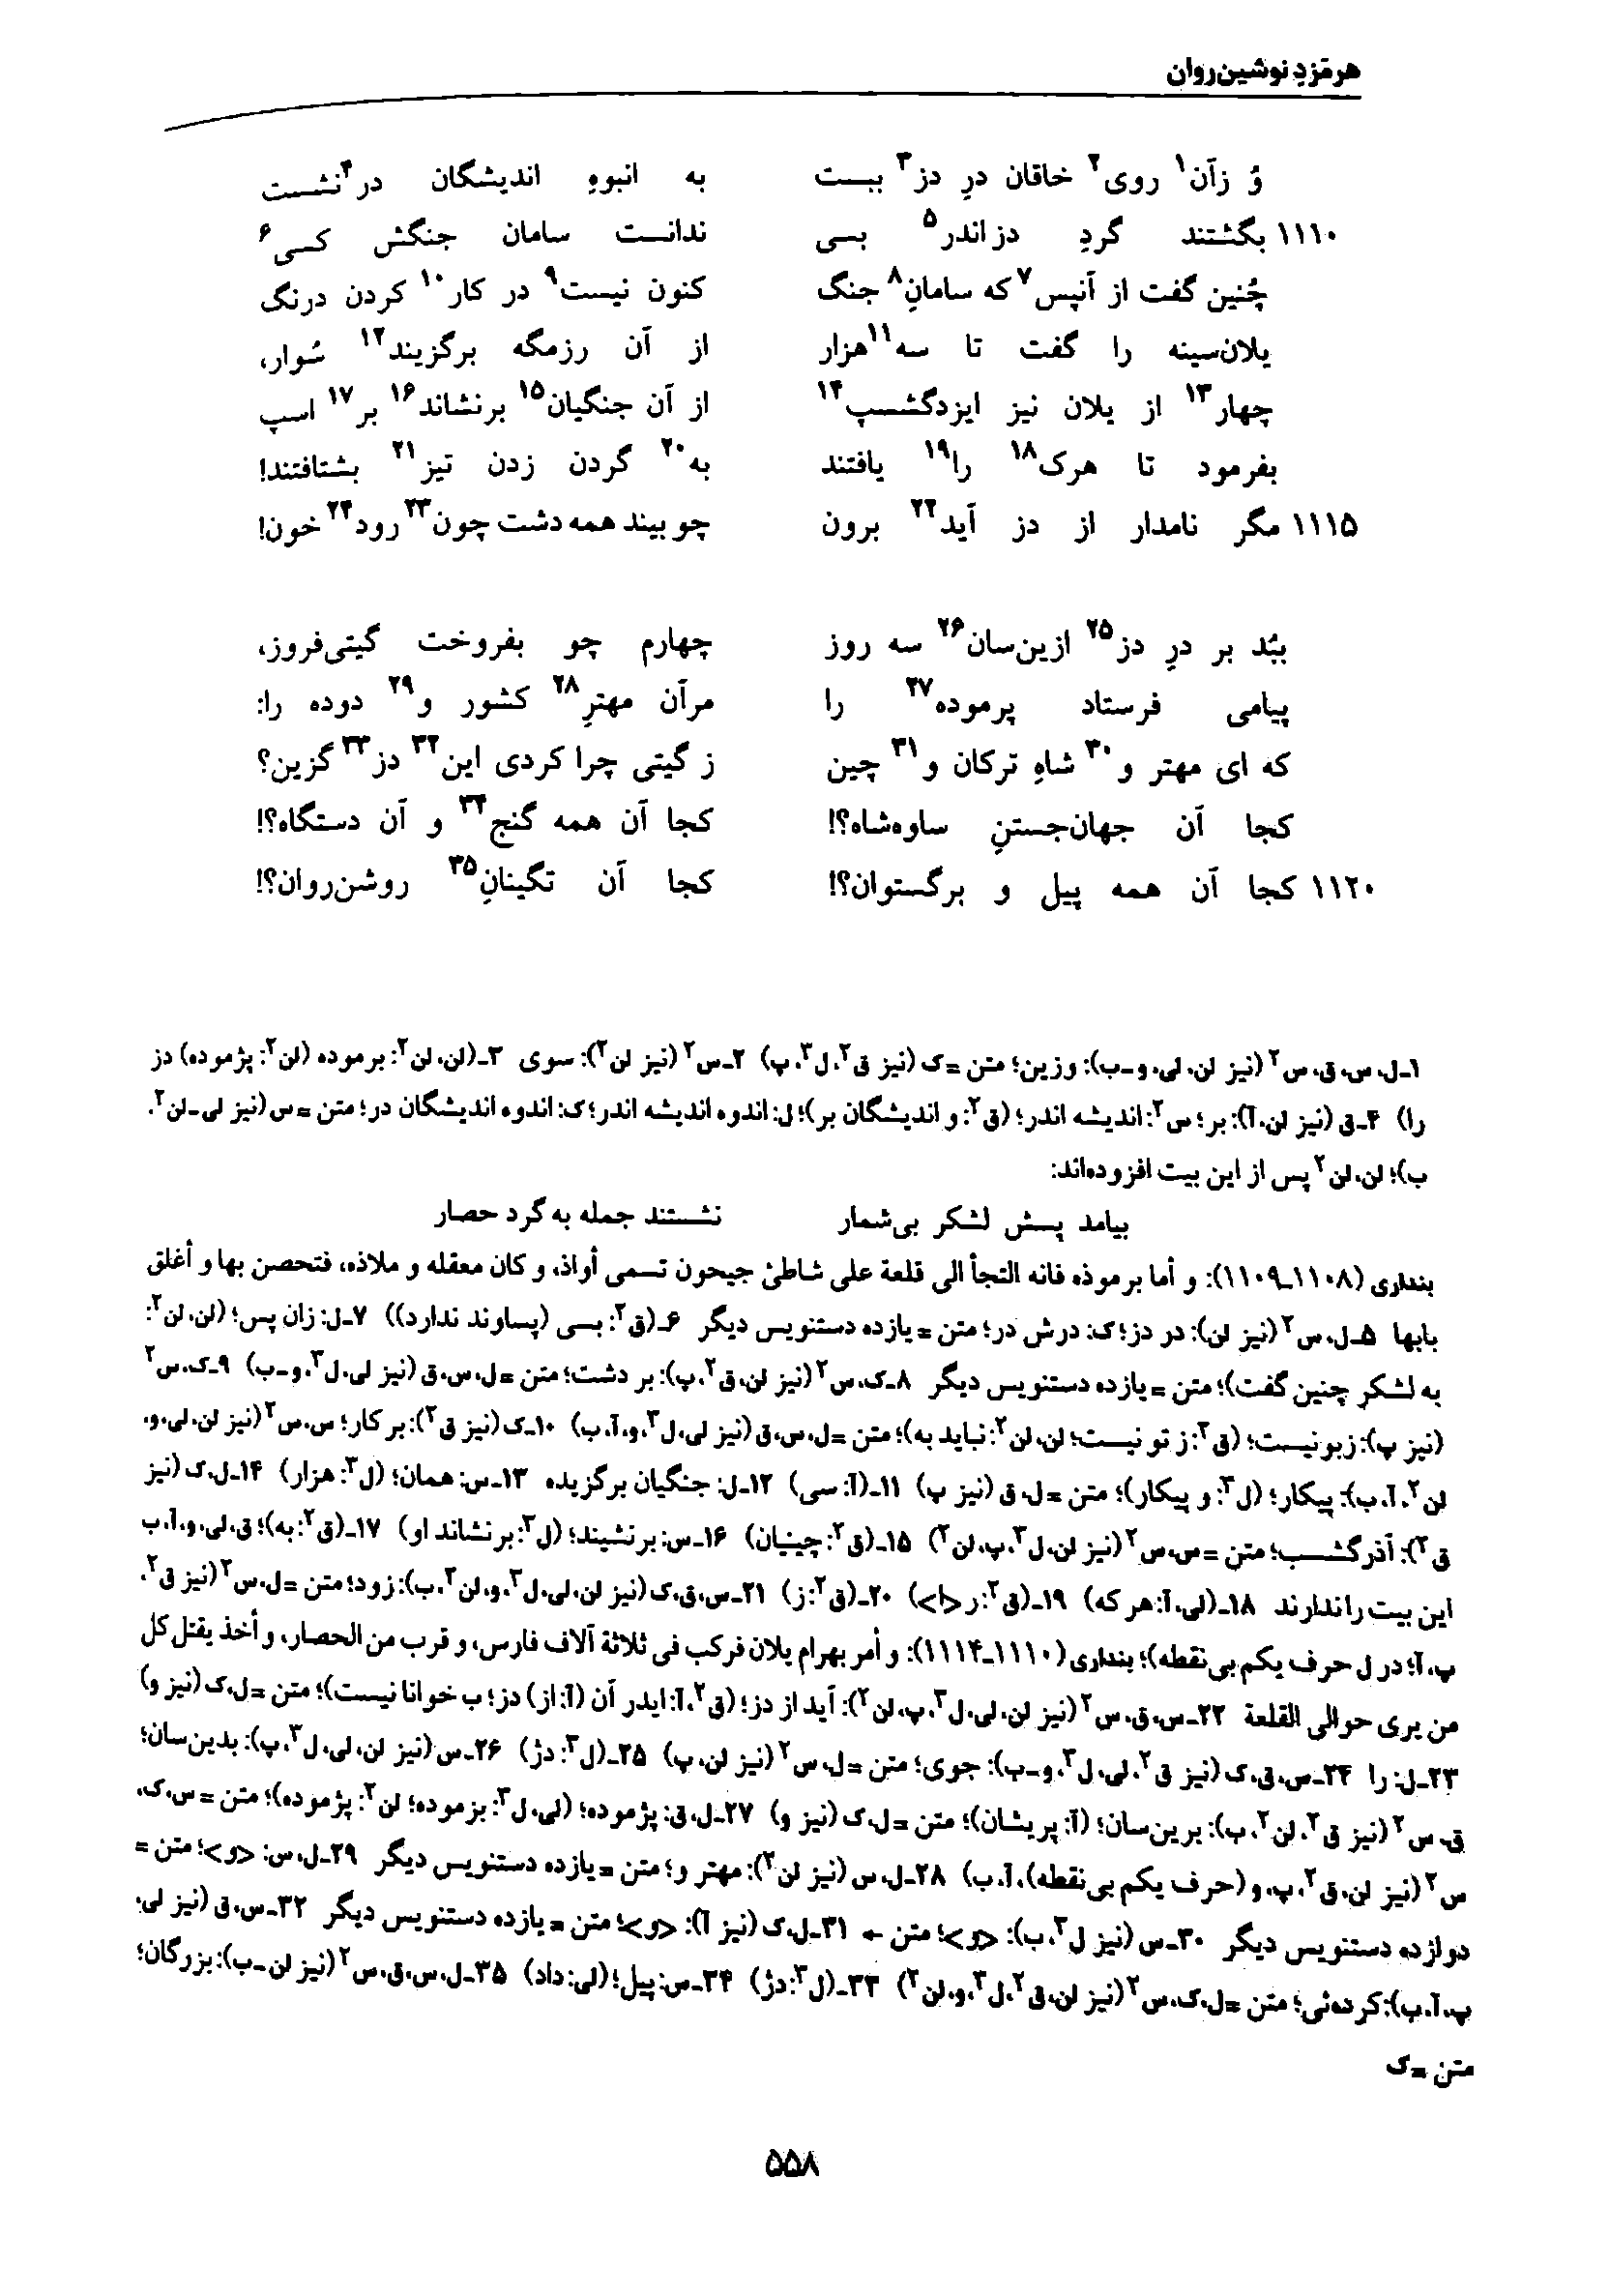 هرمَزدِ نوشین‌روان
وُ زآن۱ روی۲ خاقان درِ دز۳ ببست به انبوهِ اندیشگان در۴ نشست
۱۱۱۰ بگشتند گردِ دز اندر۵ بسی ندانست سامان جنگش کسی۶
چُنین گفت از آنپس۷ که سامانِ۸ جنگ کنون نیست۹ در کار۱۰ کردن درنگ
یلان‌سینه را گفت تا سه۱۱ هزار از آن رزمگه برگزیند۱۲ سُوار،
چهار۱۳ از یلان نیز ایزدگشسپ۱۴ از آن جنگیان۱۵ برنشاند۱۶ بر۱۷ اسپ
بفرمود تا هرک۱۸ را۱۹ یافتند به۲۰ گردن زدن تیز۲۱ بشتافتند!
۱۱۱۵ مگر نامدار از دز آید۲۲ برون چو بیند همه دشت چون۲۳ رود۲۴ خون!
ببُد بر درِ دز۲۵ ازین‌سان۲۶ سه روز چهارم چو بفروخت گیتی‌فروز،
پیامی فرستاد پرموده۲۷ را مرآن مهترِ۲۸ کشور و۲۹ دوده را:
که ای مهتر و۳۰ شاهِ ترکان و۳۱ چین ز گیتی چرا کردی این۳۲ دز۳۳ گزین؟
کجا آن جهان‌جستنِ ساوه‌شاه؟! کجا آن همه گنج۳۴ و آن دستگاه؟!
۱۱۲۰ کجا آن همه پیل و برگستوان؟! کجا آن تگینانِ۳۵ روشن‌روان؟!
۱ـ ل، س، ق، س۲ (نیز لن، لی، و ـ ب): وزین؛ متن = ک (نیز ق۲، ل۳، پ) ۲ـ س۲ (نیز لن۲): سوی ۳ـ (لن، لن۲: برموده (لن۲: پژموده) دز
را) ۴ـ ق (نیز لن، آ): بر؛ س۲: اندیشه اندر؛ (ق۲: و اندیشگان بر)؛ ل: اندوه اندیشه اندر؛ ک: اندوه اندیشگان در؛ متن = س (نیز لی ـ لن۲،
ب)؛ لن، لن۲ پس از این بیت افزوده‌اند:
بیامد پسش لشکر بی‌شمار نشستند جمله به گرد حصار
بنداری (۱۱۰۸ـ۱۱۰۹): و أما برموذه فانه التجأ الی قلعة علی شاطئ جیحون تسمی أواذه، و کان معقله و ملاذه، فتحصن بها و أغلق
بابها ۵ـ ل، س۲ (نیز لن): در دز؛ ک: درش در؛ متن = یازده دستنویس دیگر ۶ـ (ق۲: بسی (پساوند ندارد)) ۷ـ ل: زان پس؛ (لن، لن۲:
به لشکر چنین گفت)؛ متن = یازده دستنویس دیگر ۸ـ ک، س۲ (نیز لن، ق۲، پ): بر دشت؛ متن = ل، س، ق (نیز لی، ل۳، و ـ ب) ۹ـ ک، س۲
(نیز پ): زبونیست؛ (ق۲: ز تو نیست؛ لن، لن۲: نباید به)؛ متن = ل، س، ق (نیز لی، ل۳، و، آ، ب) ۱۰ـ ک (نیز ق۲): بر کار؛ س، س۲ (نیز لن، لی، و،
لن۲، آ، ب): پیکار؛ (ل۳: و پیکار)؛ متن = ل، ق (نیز پ) ۱۱ـ (آ: سی) ۱۲ـ ل: جنگیان برگزیده ۱۳ـ س: همان؛ (ل۳: هزار) ۱۴ـ ل، ک (نیز
ق۲): آذرگشسب؛ متن = س، س۲ (نیز لن، ل۳، پ، لن۲) ۱۵ـ (ق۲: چینیان) ۱۶ـ س: برنشیند؛ (ل۳: برنشاند او) ۱۷ـ (ق۲: به)؛ ق، لی، و، آ، ب
این بیت را ندارند ۱۸ـ (لی، آ: هر که) ۱۹ـ (ق۲: ر<ا>) ۲۰ـ (ق۲: ز) ۲۱ـ س، ق، ک (نیز لن، لی، ل۳، و، لن۲، ب): زود؛ متن = ل، س۲ (نیز ق۲،
پ، آ؛ در ل حرف یکم بی‌نقطه)؛ بنداری (۱۱۱۰ـ۱۱۱۴): و أمر بهرام یلان فرکب فی ثلاثة آلاف فارس، و قرب من الحصار، و أخذ یقتل کل
من یری حوالی القلعة ۲۲ـ س، ق، س۲ (نیز لن، لی، ل۳، پ، لن۲): آید از دز؛ (ق۲، آ: ایدر آن (آ: از) دز؛ ب خوانا نیست)؛ متن = ل، ک (نیز و)
۲۳ـ ل: را ۲۴ـ س، ق، ک (نیز ق۲، لی، ل۳، و ـ ب): جوی؛ متن = ل، س۲ (نیز لن، پ) ۲۵ـ (ل۳: دژ) ۲۶ـ س (نیز لن، لی، ل۳، پ): بدین‌سان؛
ق، س۲ (نیز ق۲، لن۲، ب): برین‌سان؛ (آ: پریشان)؛ متن = ل، ک (نیز و) ۲۷ـ ل، ق: پژموده؛ (لی، ل۳: بزموده؛ لن۲: پژموده)؛ متن = س، ک،
س۲ (نیز لن، ق۲، پ، و (حرف یکم بی‌نقطه)، آ، ب) ۲۸ـ ل، س (نیز لن۲): مهتر و؛ متن = یازده دستنویس دیگر ۲۹ـ ل، س: <و>؛ متن =
دوازده دستنویس دیگر ۳۰ـ س (نیز ل۳، ب): <و>؛ متن ← ۳۱ـ ل، ک (نیز آ): <و>؛ متن = یازده دستنویس دیگر ۳۲ـ س، ق (نیز لی،
پ، آ، ب): کرده‌ئی؛ متن = ل، ک، س۲ (نیز لن، ق۲، ل۳، و، لن۲) ۳۳ـ (ل۳: دژ) ۳۴ـ س: پیل؛ (لی: داد) ۳۵ـ ل، س، ق، س۲ (نیز لن ـ ب): بزرگان؛
متن = ک
۵۵۸